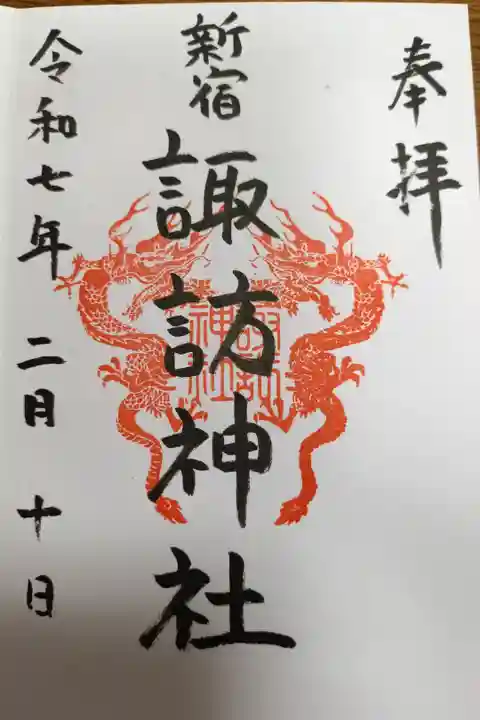 奉拝
新宿
諏訪神社
諏訪
神社
令和七年 二月 十日